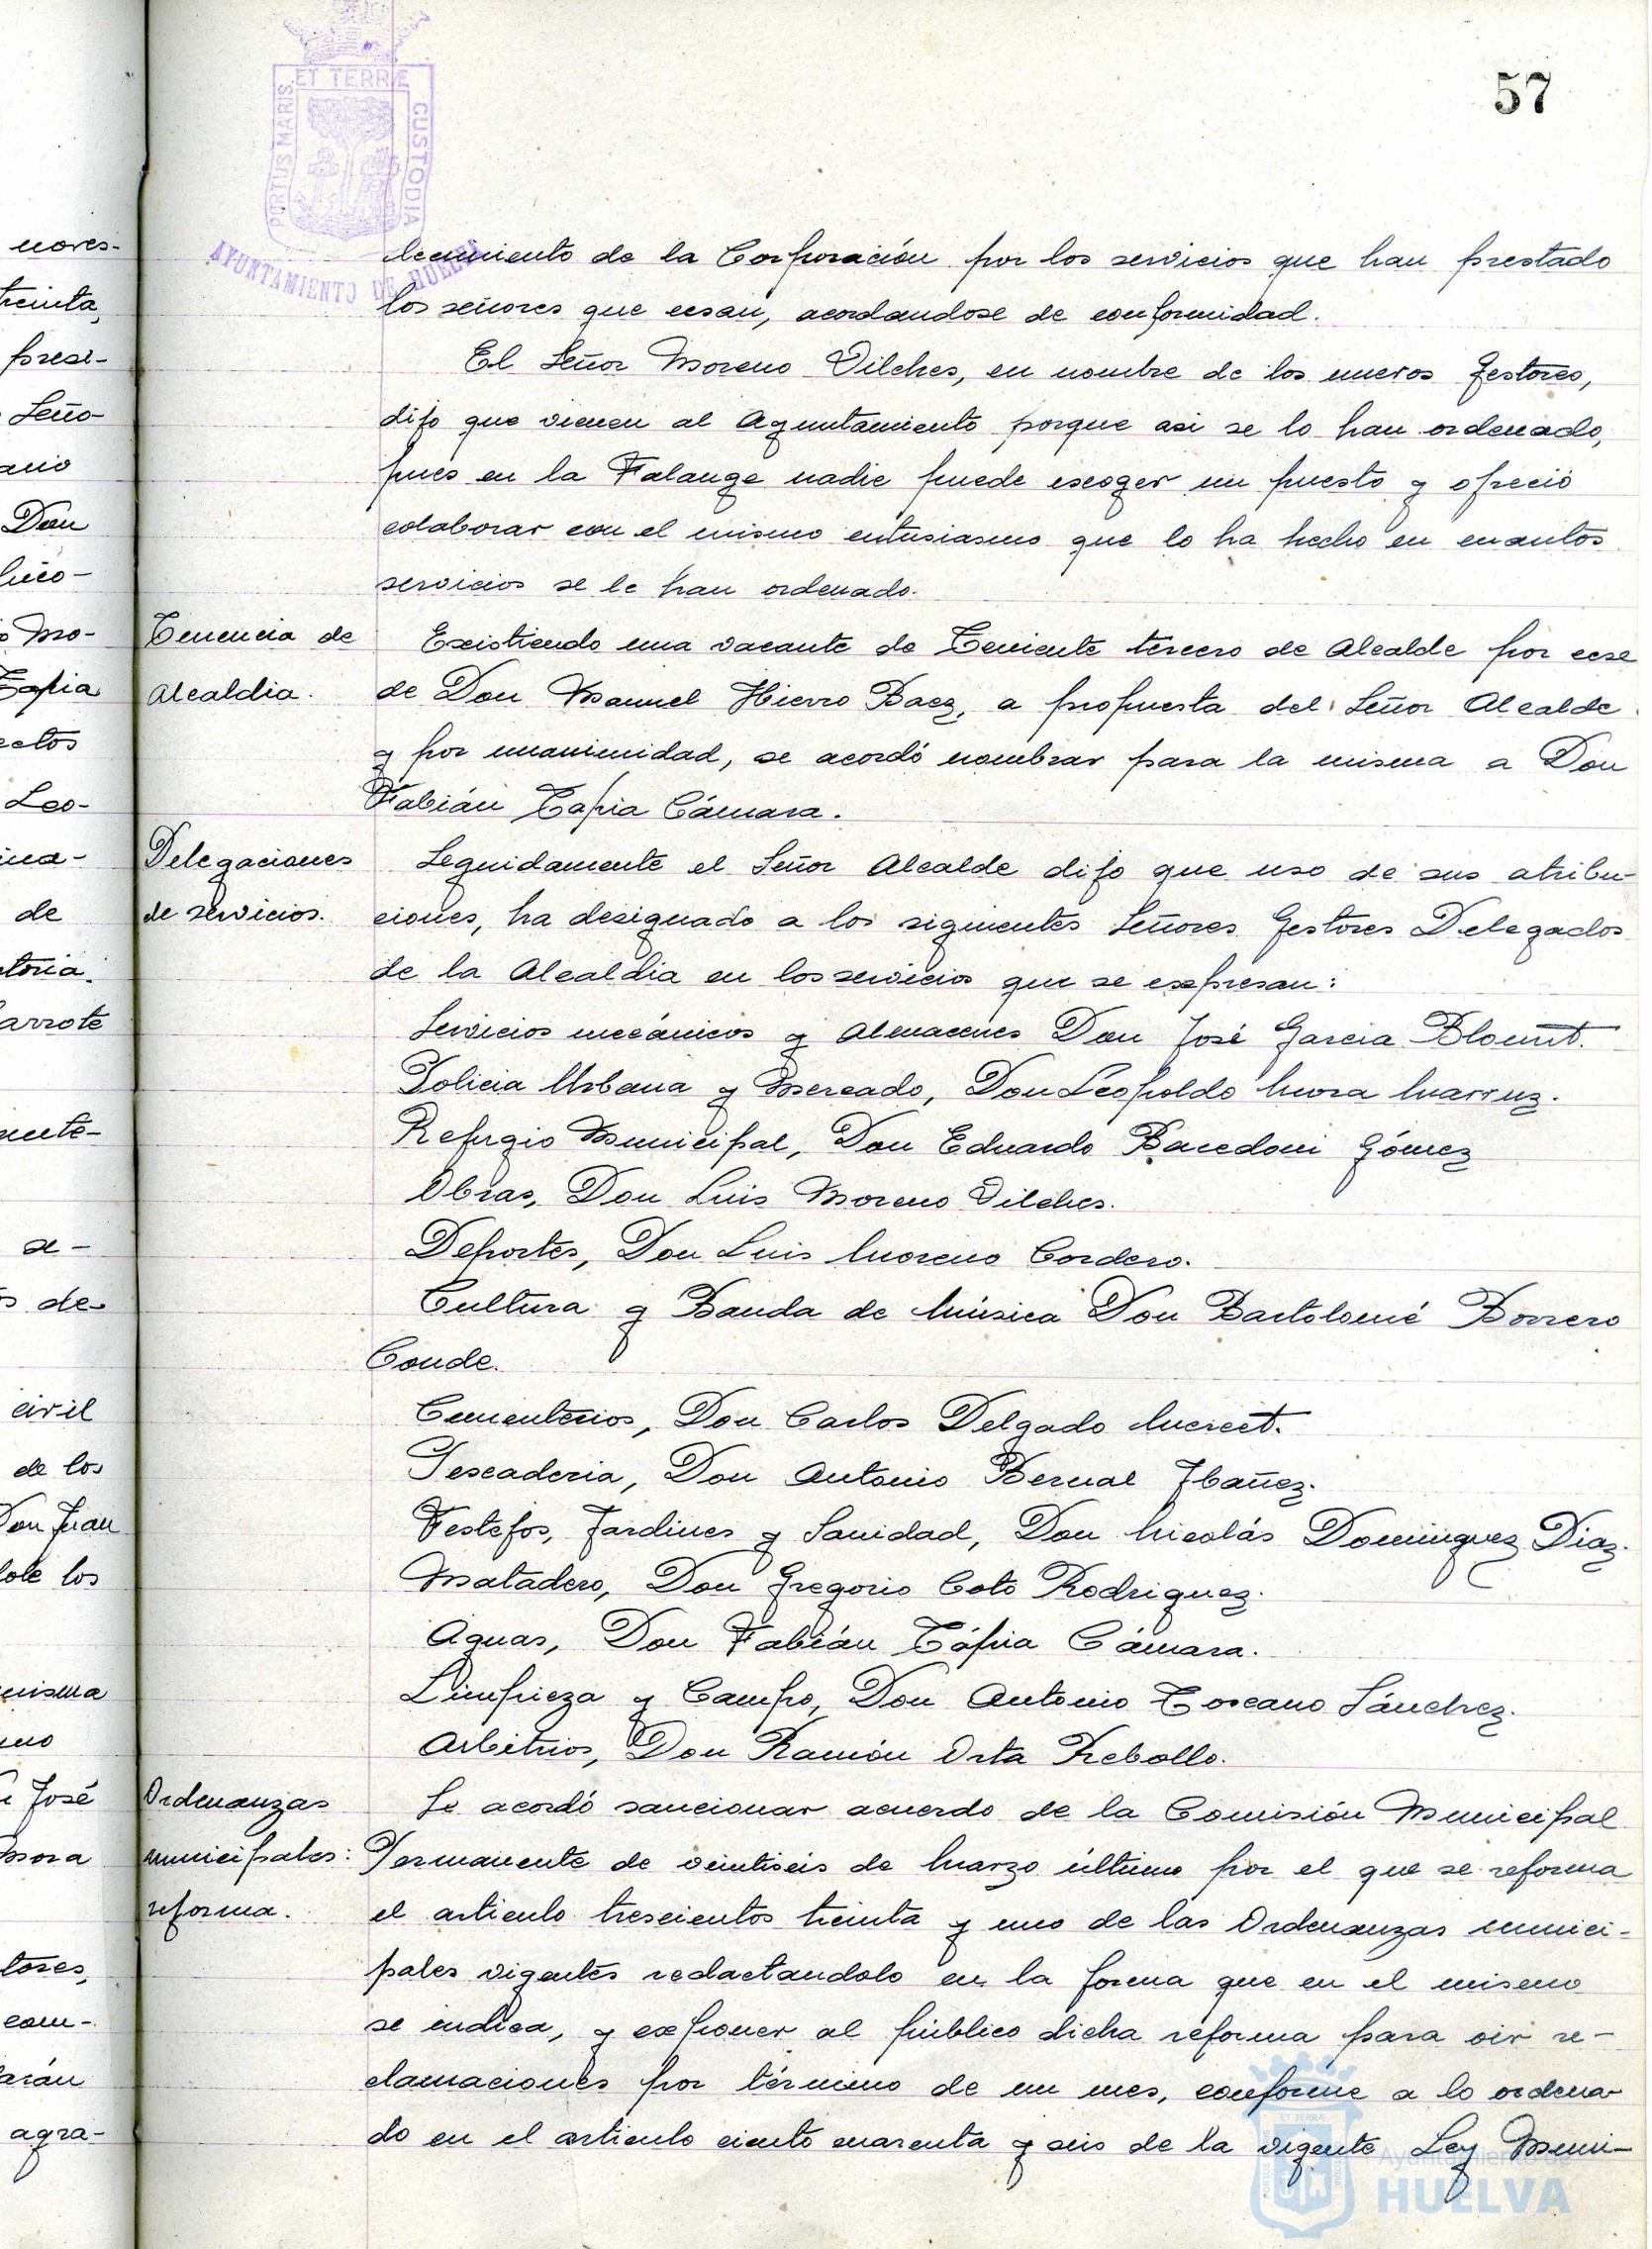 57
PORTUS MARIS ET TERRÆ CUSTODIA
AYUNTAMIENTO DE HUELVA
nores-
treinta,
presi-
Seño-
ario
Don
o Mo-
Tapia
ectos
Leo-
de
toria.
arrote
mente-
a-
s de-
civil
de los
Don Juan
los
misma
José
Mora
tores,
com-
arán
agra-
lecimiento de la Corporación por los servicios que han prestado
los señores que cesan, acordandose de conformidad.
El Señor Moreno Vilches, en nombre de los nuevos Gestores,
dijo que vienen al Ayuntamiento porque asi se lo han ordenado,
pues en la Falange nadie puede escoger un puesto y ofreció
colaborar con el mismo entusiasmo que lo ha hecho en cuantos
servicios se le han ordenado.
Tenencia de
Alcaldia.
Existiendo una vacante de Teniente tercero de Alcalde por cese
de Don Manuel Hierro Baez, a propuesta del Señor Alcalde
y por unanimidad, se acordó nombrar para la misma a Don
Fabián Tapia Cámara.
Delegaciones
de servicios.
Seguidamente el Señor Alcalde dijo que uso de sus atribu-
ciones, ha designado a los siguientes Señores Gestores Delegados
de la Alcaldia en los servicios que se expresan:
Servicios mecánicos y Almacenes Don José Garcia Blount.
Policia Urbana y Mercado, Don Leopoldo Mora Marruz.
Refugio Municipal, Don Eduardo Bacedoni Gómez
Obras, Don Luis Moreno Vilches.
Deportes, Don Luis Moreno Cordero.
Cultura y Banda de Música Don Bartolomé Borrero
Conde.
Cementerios, Don Carlos Delgado Mercet.
Pescaderia, Don Antonio Bernal Ibañez.
Festejos, Jardines y Sanidad, Don Nicolás Dominguez Diaz.
Matadero, Don Gregorio Coto Rodriguez.
Aguas, Don Fabián Tápia Cámara.
Limpieza y Campo, Don Antonio Toscano Sánchez.
Arbitrios, Don Ramón Orta Rebollo.
Ordenanzas
municipales:
reforma.
Se acordó sancionar acuerdo de la Comisión Municipal
Permanente de veintiseis de Marzo último por el que se reforma
el articulo trescientos treinta y uno de las Ordenanzas munici-
pales vigentes redactandolo en la forma que en el mismo
se indica, y exponer al público dicha reforma para oir re-
clamaciones por término de un mes, conforme a lo ordena-
do en el articulo ciento cuarenta y seis de la vigente Ley Muni-
Ayuntamiento de
HUELVA